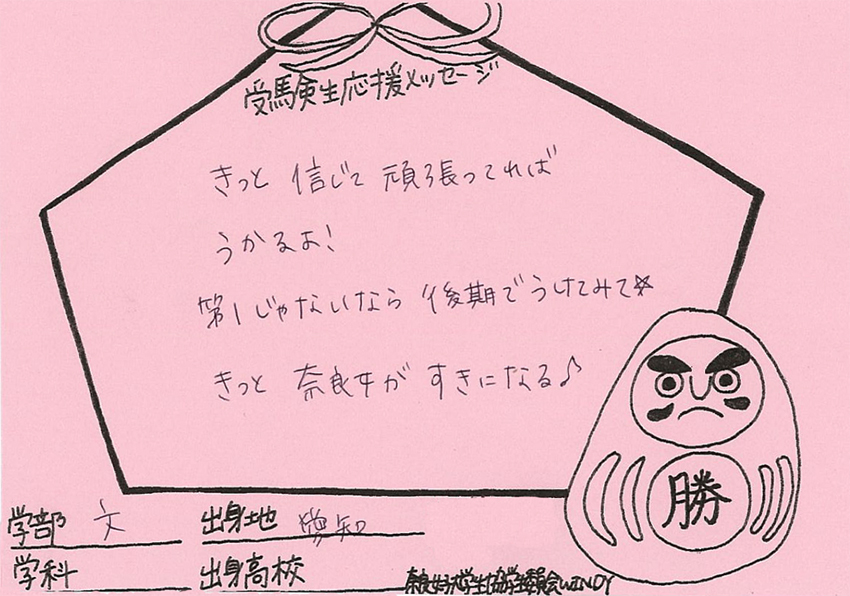 受験生応援メッセージ
きっと 信じて 頑張ってれば
うかるよ!
第1じゃないなら 後期でうけてみて☆
きっと 奈良女が すきになる♪
勝
学部 文 出身地 愛知
学科 出身高校
奈良女子大学生協学生委員会WINDY